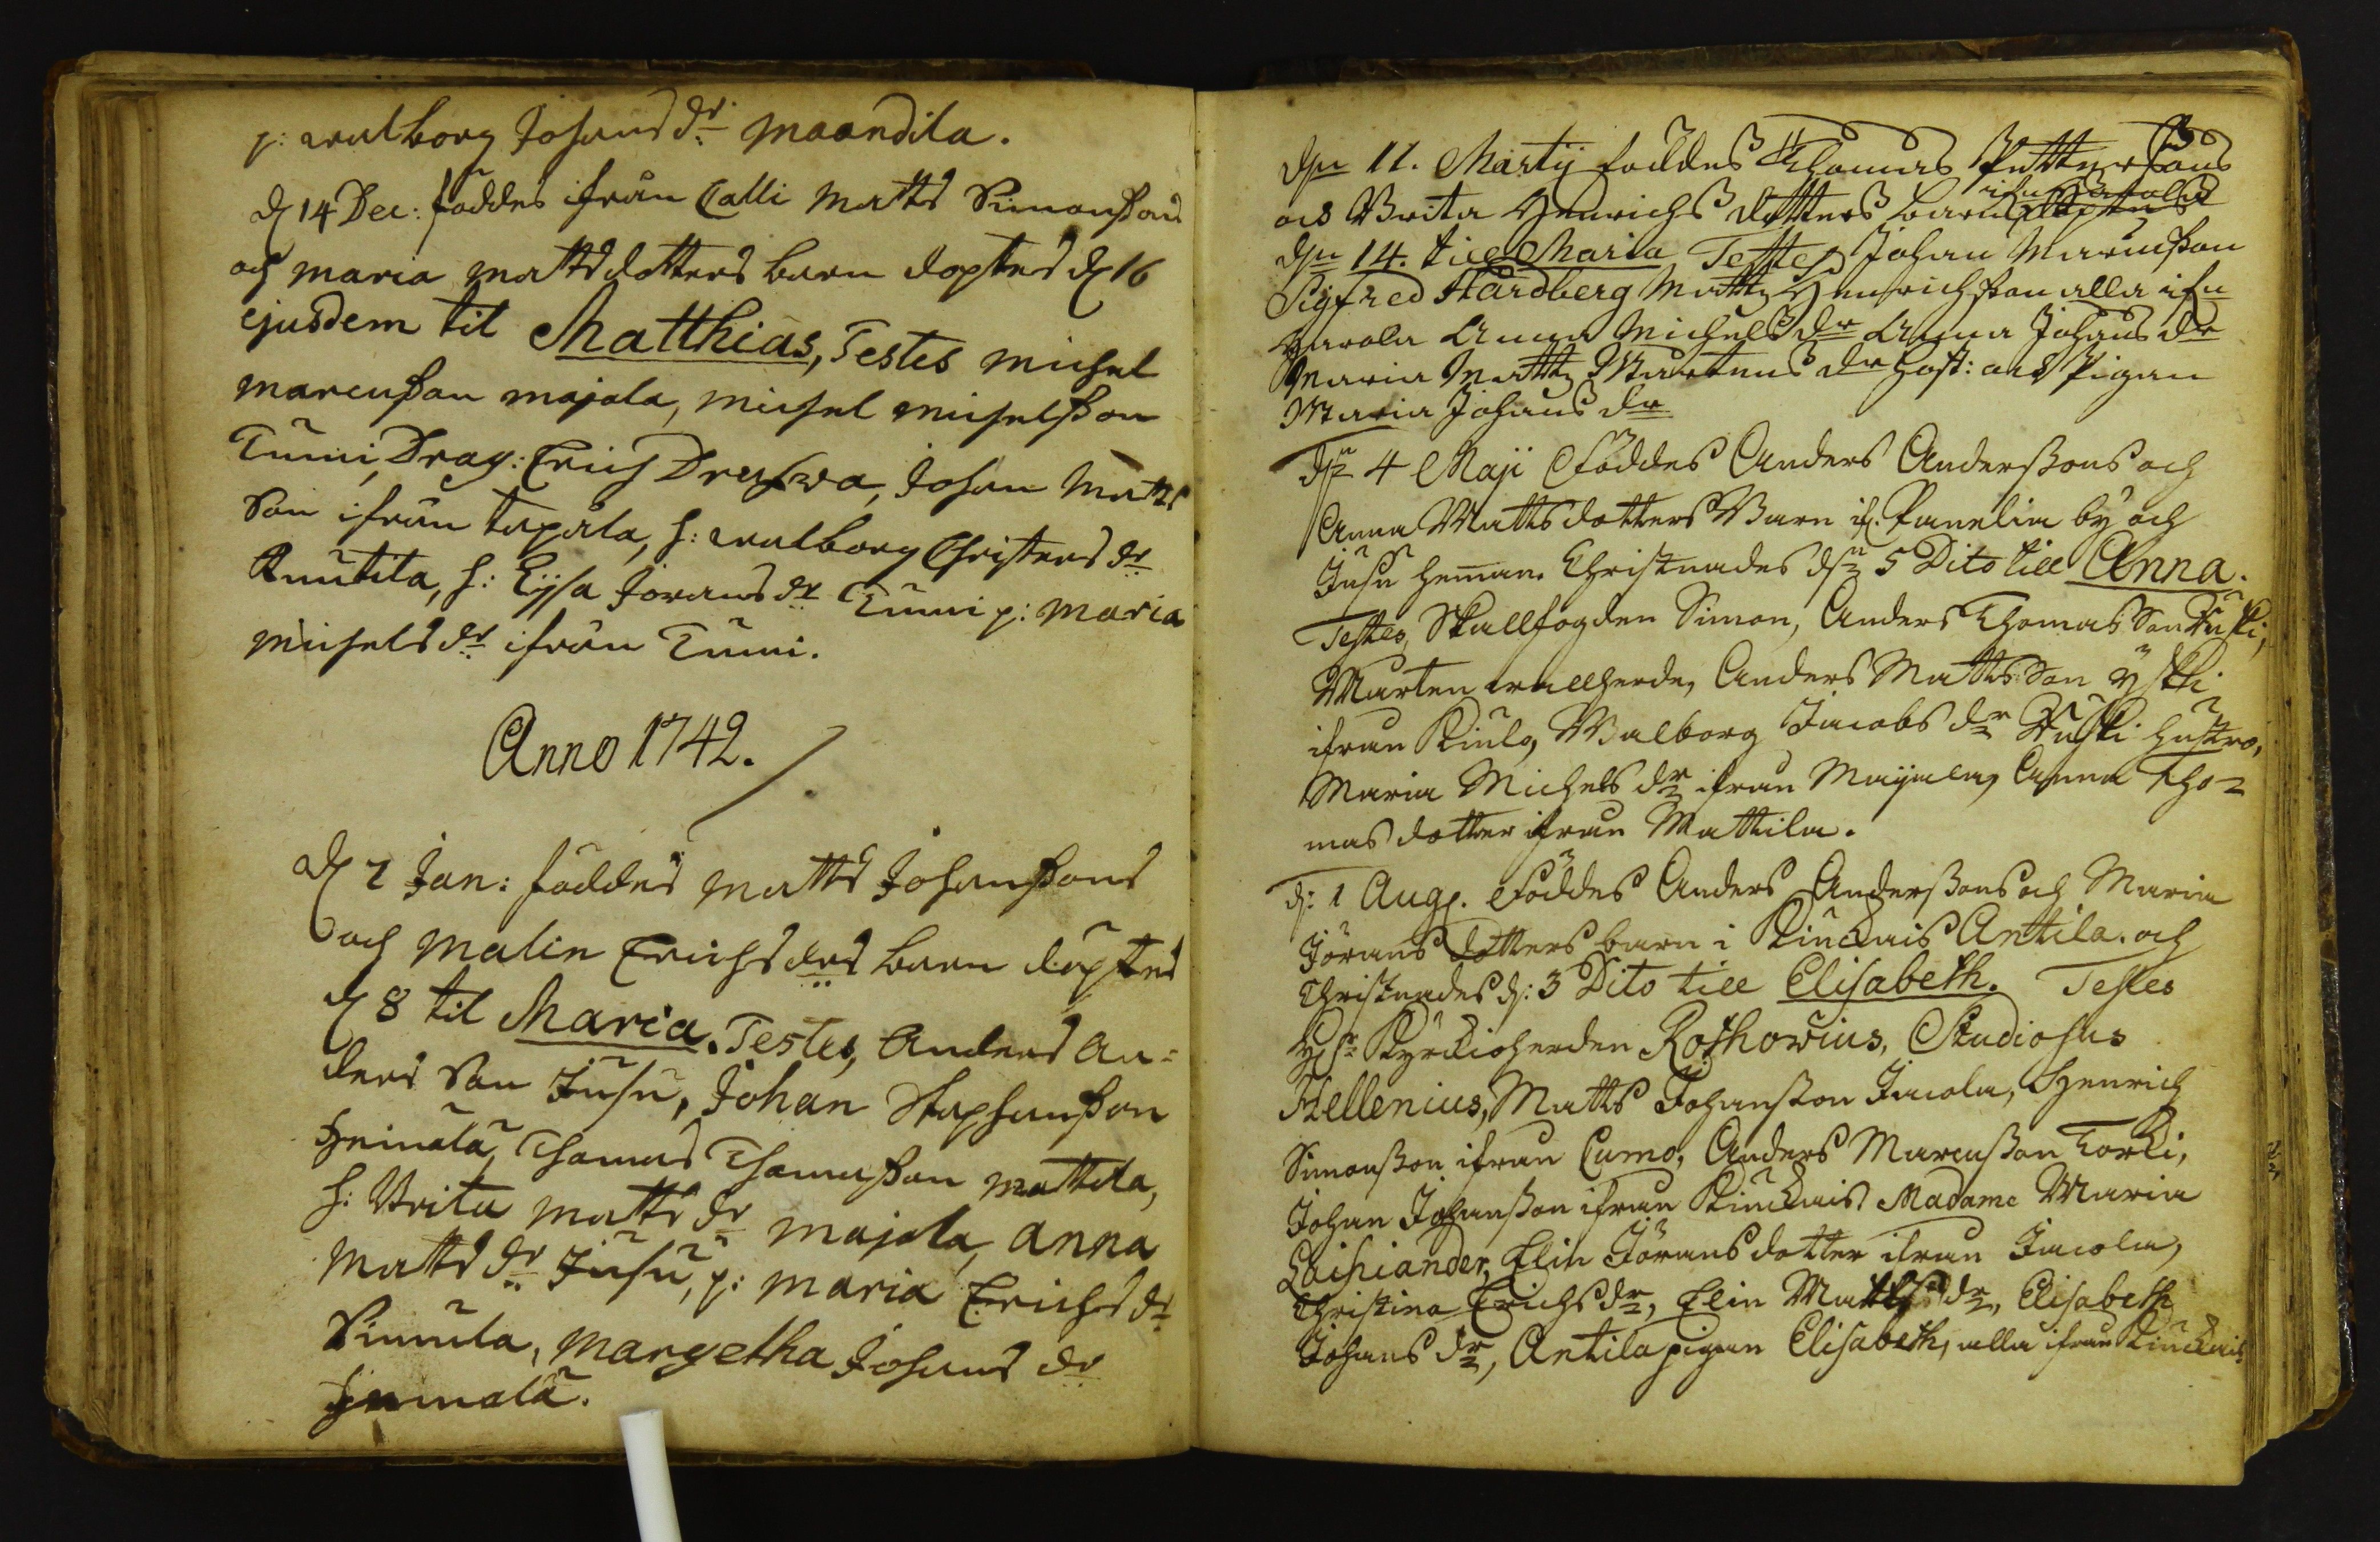 p: walborg Johans dr Maandila.
d 14 Dec: föddes ifrån Calli Matts Simonssons
och Maria Mattsdotters barn döptes d 16
ejusdem til Matthias, Testes Michel
Marcusson Majala, Michel Michelsson
Tuini, Drag: Erich Dref, Johan Matts
son ifrån Tapala, h: walborg Christers dr
Knutila, h: Lijsa Jörans dr Tuini p: Maria
Michels dr ifrån Tuini.
Anno 1742.
d 2 Jan: föddes Matts Johanssons
och Malin Erichs drs barn döptes
d 8 til Maria. Testes, Anders An=
ders son Jusu, Johan Stephansson
Heinola, Thomas Thomasson Mattila,
h: Brita Matts dr Majala, Anna
Matts dr Jusu, p: Maria Erichs dr
Simula, Margetha Johans dr
Heinola.
den 11. Martij föddes Thomas Pettersons
och Brita Henrichs dotters barn
den 14. till Maria Testes Johan Marcusson
Sigfred Hardberg Matts Henrichsson alla ifn
Anna Michels dr Anna Johans dr
Maria Matts Martens dr Host: och Pigan
Maria Johans dr
dn 4 Maji Föddes Anders Anderssons och
Anna Mattsdotters Barn if. Panelia by och
Jusu heman. Christnades dn 5 Dito till Anna.
Testes, Skallfogden Simon, Anders Thomas Son Kuski,
Marten wallherde, Anders Matts son Yski
ifrån Kiulo, Walborg Jacobs dr Kuski hustro,
Maria Michels dr ifrån Majala, Anna Tho=
mas dotter ifrån Mattila.
d: 1 Aug. Föddes Anders Anderssons och Maria
Jörans dotters barn i Kiuckais Antila. och
Christnades d: 3 Dito till Elisabeth. Testes
H. Hr Kyrckioherden Rothowius, Studiosus
Hellenius, Matts Johansson Jacola, Henrich
Simonsson ifrån Cumo, Anders Marcusson Torcki,
Johan Johansson ifrån Kiuckais Madame Maria
Laihiander, Elin Jörans dotter ifrån Jacola,
Christina Erichs dr, Elin Matts dr, Elisabeth
Johans dr, Antila pigan Elisabeth, alla ifrån Kiuckais